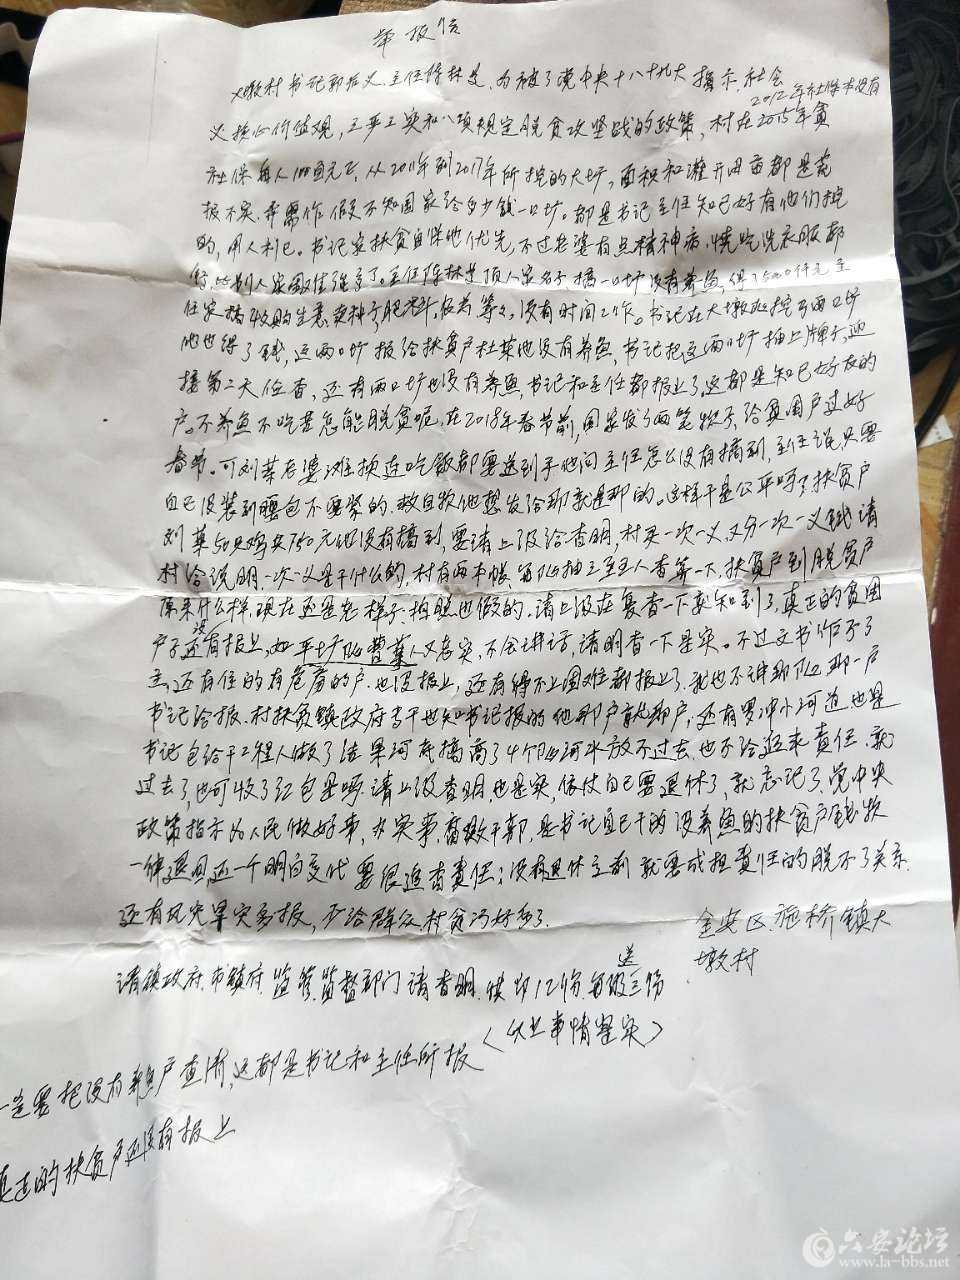 举报信
大墩村书记郭后义、主任修林是,为被了党中央十八十九大指示、社会
2012年社保本没有
义核心价值观,三严三实和八项规定脱贫攻坚战的政策,村在2015年贫
社保每人100元,从2011年到2017年所挖的大圹,面积和灌开田亩都是花
报不实,弄虚作假不知国家给多少钱一口圹。都是书记主任知己好有他们挖
的,用人利己。书记家扶贫自保他优先,不过老婆有点精神病,烧吃洗衣服都
行,比别人家困难强多了。主任修林是顶人家名字搞一口圹没有养鱼,得了5000仟元主
任家搞收购生意卖种子肥料,农药等等,没有时间工作。书记在大墩队挖了两口圹
他也得了钱,这两口圹报给扶贫户杜某他没有养鱼,书记把这两口圹抽上牌子,迎
接第二天位查,还有两口圹也没有养鱼,书记和主任都报上了,这都是知己好友的
户。不养鱼不吃苦怎能脱贫呢,在2018年春节前,国家发了两笔物子,给贫困户过好
春节。可刘某老婆瘫换连吃饭都要送到手他问主任怎么没有搞到,主任说,只要
自己没装到腰包不要紧的,救自物他想发给那就是那的。这样干是公平吗?扶贫户
刘某50只鸡共750元他没有搞到,要请上级给查明,村来一次一义又分一次一义钱请
村给说明一次一义是干什么的,村有两本帐,每队抽三至五人查算一下,扶贫户到脱贫户
原来什么样,现在还是老样子,拍照也做的,请上级在复查一下就知到了,真正的贫困
户子还没有报上,如平圹队曹某人又老实,不会讲话,请明查一下是实。不过文书作不了
主,还有住的有危房的户,也没报上,还有得不上困难都报上了,我也不讲那队那一户
书记给报,村扶贫镇政府专干也知书记报的他那户就那户,还有罗冲小河道也是
书记包给干工程人做了结果河床搞高了4个队河水放不过去,也不给追来责任,就
过去了,也可收了红包是吗,请上级查明,也是实,倍仗自己要退休了,就忘记了,党中央
政策指示为人民做好事,办实事,腐败干部,是书记自己干的没养鱼的扶贫户钱物
一律退回,还一个明白交代,要很追查责任;没有退休之前就要成担责任的脱不了关系.
还有风灾旱灾多报,不给群众村贫污好多了.
金安区施桥镇大
墩村
请镇政府,市镇府,监管监督部门请查明,供印12份,每级送三份
(以上事情军实)
一定要把没有养鱼户查清,这都是书记和主任所报
真正的扶贫户还没有报上
六安论坛
www.la-bbs.net